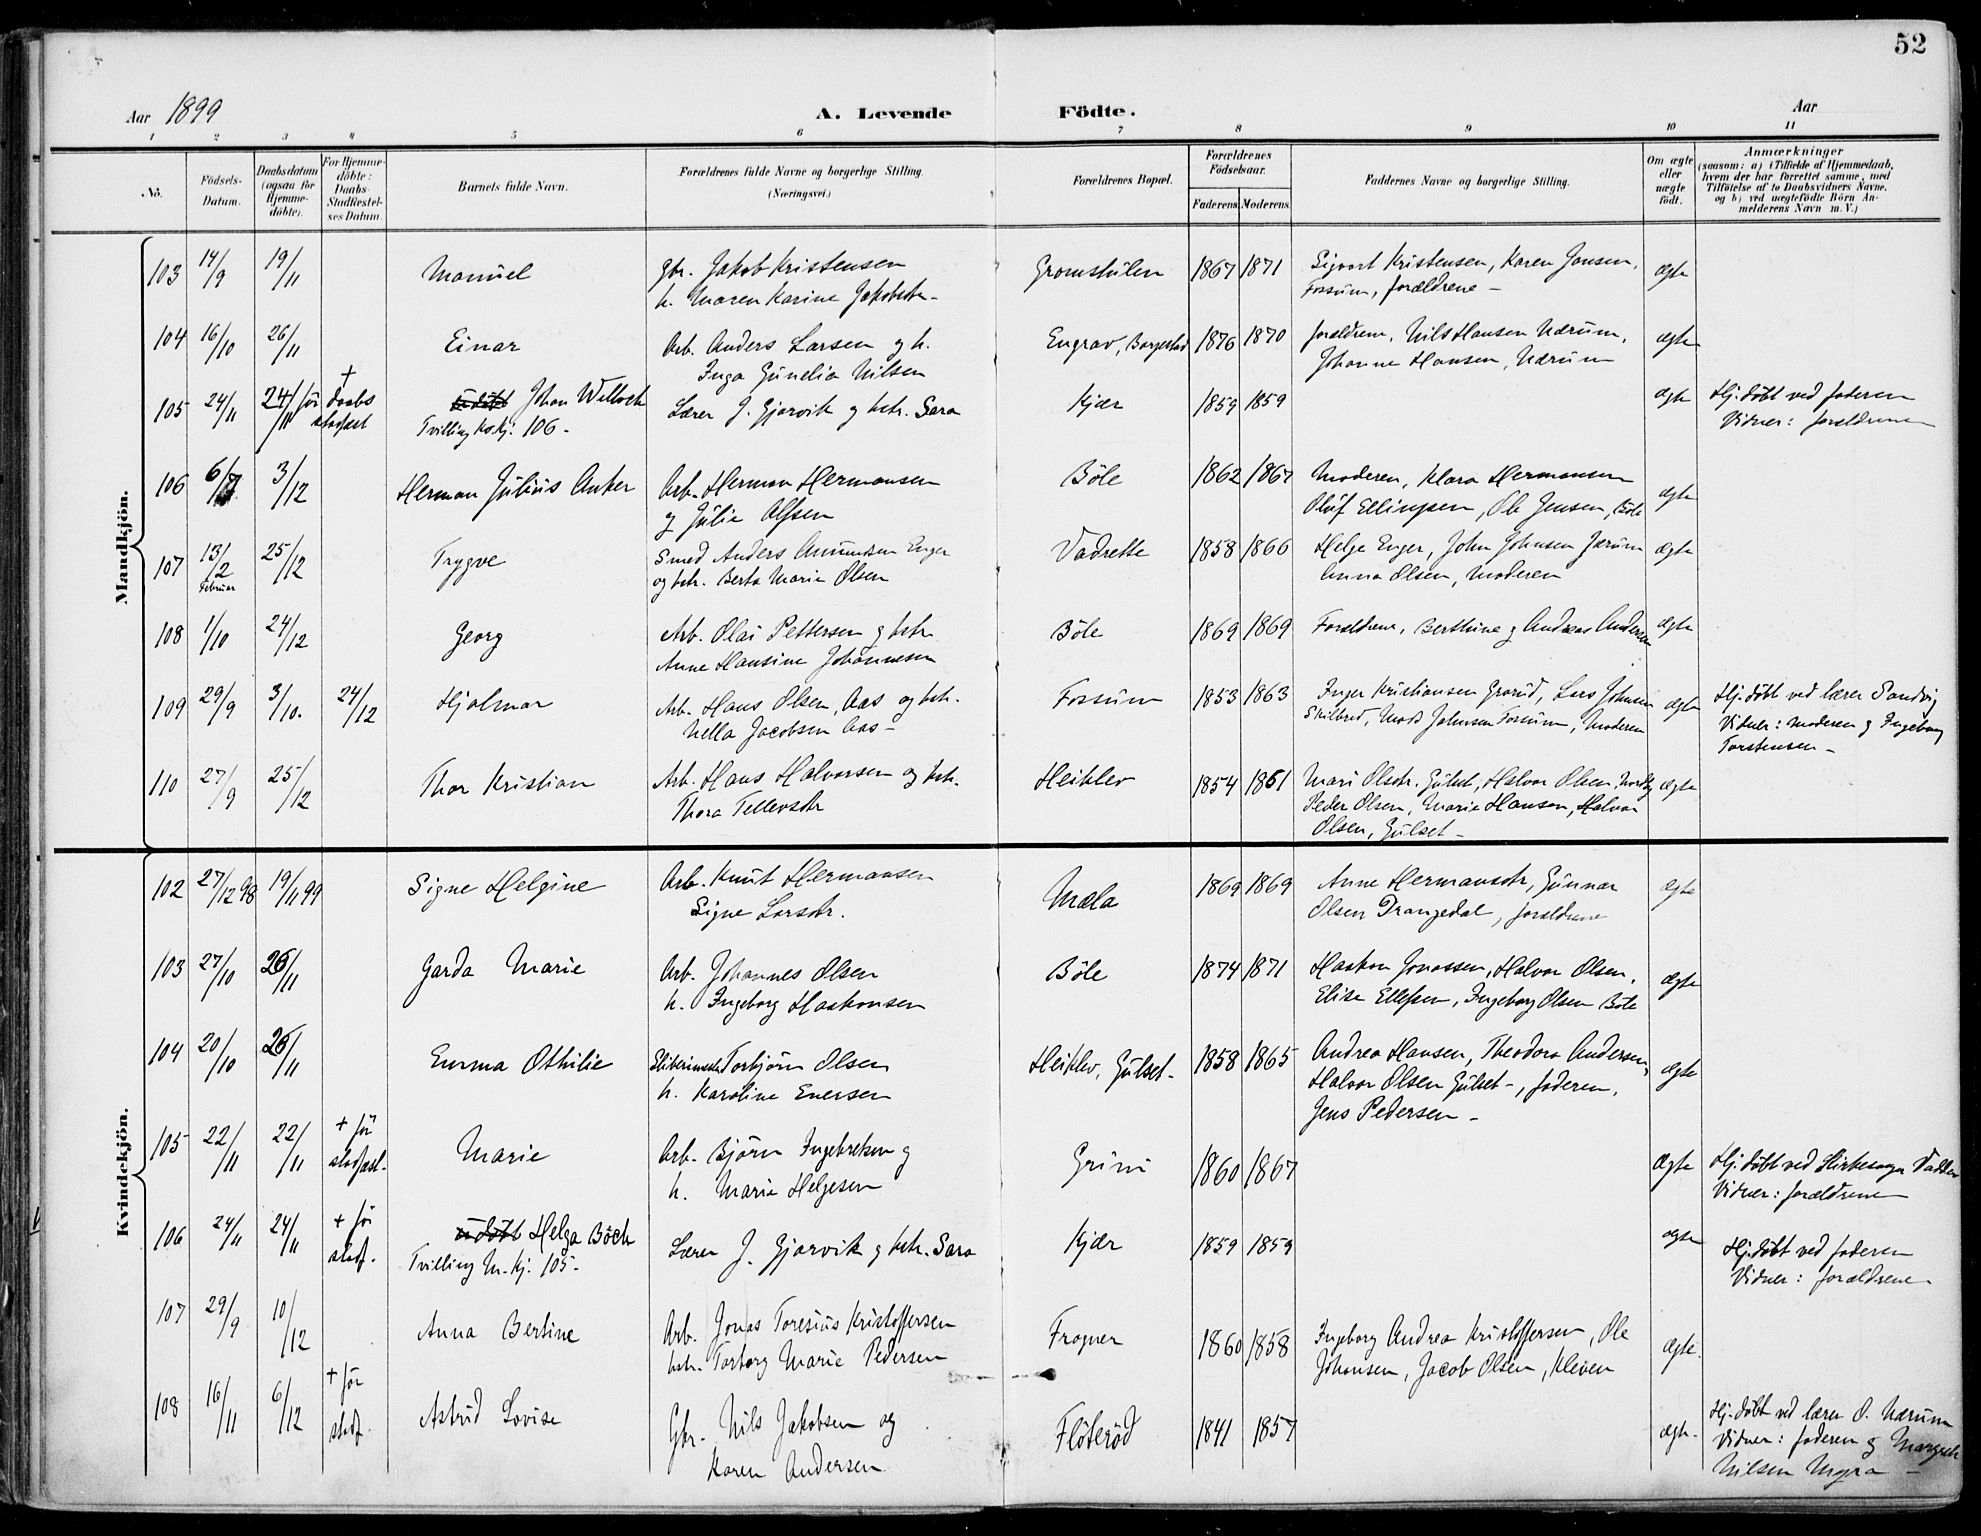 52
Aar 1899 A. Levende Födte. Aar
1 2 3 4 5 6 7 8 9 10 11
No. Födsels-Datum. Daabsdatum (ogsaa for Hjemme-döbte). For Hjemme-döbte: Daabs-Stadfæstel-ses Datum. Barnets fulde Navn. Forældrenes fulde Navne og borgerlige Stilling. (Næringsvei.) Forældrenes Bopæl. Forældrenes Födselsaar. Faderens Moderens Faddernes Navne og borgerlige Stilling. Om ægte eller uægte födt. Anmærkninger (saasom: a) i Tilfælde af Hjemmedaab, hvem der har forrettet samme, med Tilföielse af to Daabsvidners Navne, og b) ved uægtefödte Börn An-melderens Navn m. V.)
Mandkjön.
103 14/9 19/11 Manuel Gbr. Jakob Kristensen Gromstulen 1867 1871 Sigvart Kristensen, Karen Jansen, ægte
h. Maren Karine Jakobsdr. Fossum, forældrene -
104 16/10 26/11 Einar Arb. Anders Larsen og h. Engrav, Borgestad 1876 1870 forældrene, Nils Hansen Nærum, ægte
Inga Gunelia Nilsen Johanne Hansen, Nærum
105 24/11 24/11 + før daabs stadfæst udøbt Johan Welloch Lærer J. Gjarvik og hstr. Sara Kjær 1859 1859 ægte Hj. døbt ved faderen
Tvilling Kv.kj. 106 - Vidner: forældrene
106 6/7 3/12 Herman Julius Anker Arb. Herman Hermansen Böle 1862 1867 Moderen, Klara Hermansen ægte
og Julie Olsen Oluf Ellingsen, Ole Jensen, Böle
107 13/2 Februar 25/12 Trygve Smed Anders Amundsen Enger Vadrette 1858 1866 Helge Enger, John Johnsen Jærum ægte
og hstr. Berta Marie Olsen Anna Olsen, Moderen
108 1/10 24/12 Georg Arb. Olai Pettersen og hstr. Böle 1869 1869 Forældrene, Berthine og Andreas Andersen ægte
Anne Hansine Johannesen
109 29/9 3/10. 24/12 Hjalmar Arb. Hans Olsen, Aas og hstr. Fossum 1853 1863 Inger Kristiansen Grorud, Lars Johnsen ægte Hj. døbt ved lærer Sandvig
Nella Jacobsen Aas - Skilbred, Mads Johnsen Fossum, Moderen Vidner: Moderen og Ingeborg
Torstensen -
110 27/9 25/12 Thor Kristian Arb. Hans Halvorsen og hstr. Heiklev 1854 1861 Mari Olsdr. Gulset, Halvor Olsen, ægte
Thora Tellevsdr Peder Olsen, Marie Hansen, Halvor
Olsen, Gulset -
Kvindekjön.
102 27/12 98 19/11 99 Signe Helgine Arb. Knut Hermansen Mæla 1869 1869 Anne Hermansdr, Gunnar ægte
Signe Larsdr. Olsen Drangedal, forældrene
103 27/10 26/11 Garda Marie Arb. Johannes Olsen Böle 1874 1871 Haakon Jonassen, Halvor Olsen, ægte
h. Ingeborg Haakonsen Elise Ellefsen, Ingeborg Olsen Böle
104 20/10 26/11 Emma Othilie Sliberimester Torbjörn Olsen Heiklev, Gulset - 1858 1865 Andrea Hansen, Theodora Andersen, ægte
h. Karoline Enersen Halvor Olsen Gulset -, faderen,
Jens Pedersen -
105 22/11 22/11 + før stadfæst. Marie Arb. Björn Ingebretsen og Grini 1860 1867 ægte Hj. døbt ved Kirkesanger
h. Marie Helgesen Vidner: forældrene
106 24/11 24/11 + før stadf. udøbt Helga Böck Lærer J. Gjarvik og hstr. Sara Kjær 1859 1859 ægte Hj. døbt ved faderen
Tvilling M.kj. 105 - Vidner: forældrene
107 29/9 10/12 Anna Bertine Arb. Jonas Toresius Kristoffersen Frogner 1860 1858 Ingeborg Andrea Kristoffersen, Ole ægte.
hstr. Torborg Marie Pedersen Johansen, Jacob Olsen, Kleven
108 16/11 6/12 + før stadf. Astrid Lovise Gbr. Nils Jakobsen og Flöteröd 1841 1857 ægte. Hj. døbt ved lærer O. Nærum
Karen Andersen Vidner: faderen og Margrete
Nilsen Myra -